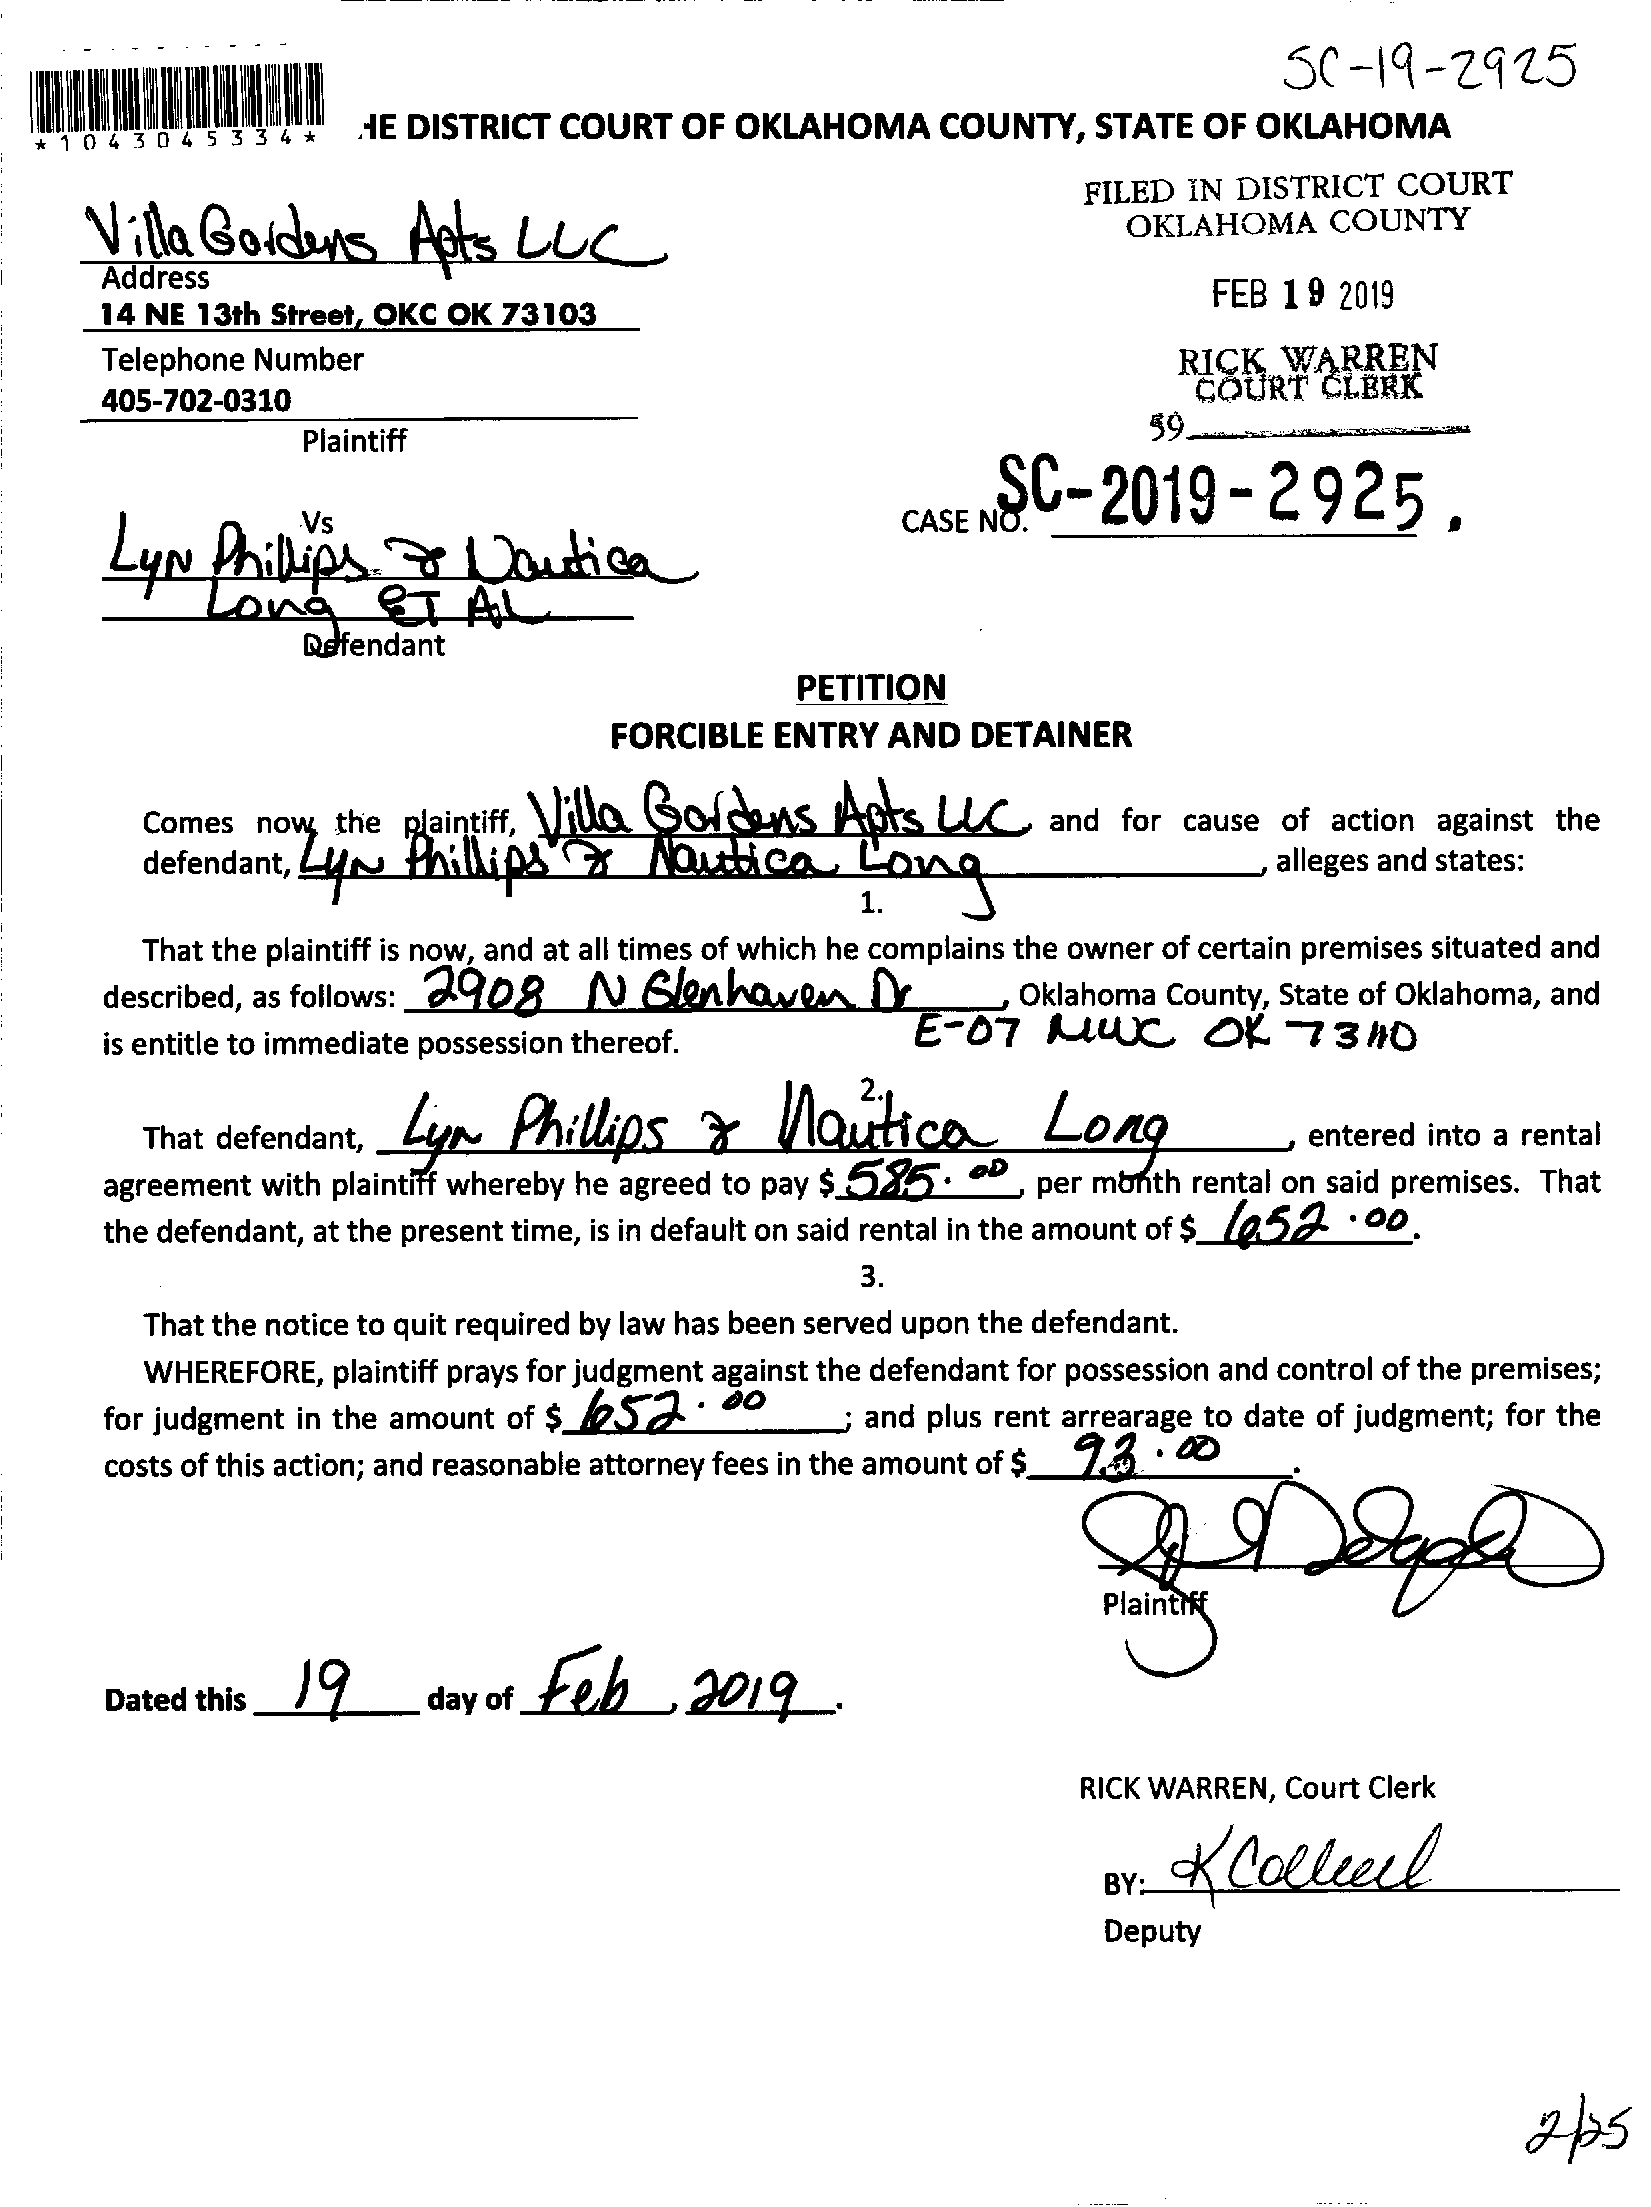 SC-19-2925
*1043045334*
HE DISTRICT COURT OF OKLAHOMA COUNTY, STATE OF OKLAHOMA
FILED IN DISTRICT COURT
OKLAHOMA COUNTY
FEB 19 2019
RICK WARREN
COURT CLERK
39
Villa Gardens Apts LLC
Address
14 NE 13th Street, OKC OK 73103
Telephone Number
405-702-0310
Plaintiff
Vs
CASE NO. SC-2019-2925.
Lyn Phillips & Nautica
Long ET AL
Defendant
PETITION
FORCIBLE ENTRY AND DETAINER
Comes now the plaintiff, Villa Gardens Apts LLC and for cause of action against the
defendant, Lyn Phillips & Nautica Long, alleges and states:
1.
That the plaintiff is now, and at all times of which he complains the owner of certain premises situated and
described, as follows: 2908 N Glenhaven Dr, Oklahoma County, State of Oklahoma, and
is entitle to immediate possession thereof. E-07 MWC OK 73110
2.
That defendant, Lyn Phillips & Nautica Long, entered into a rental
agreement with plaintiff whereby he agreed to pay $ 585.00, per month rental on said premises. That
the defendant, at the present time, is in default on said rental in the amount of $ 652.00.
3.
That the notice to quit required by law has been served upon the defendant.
WHEREFORE, plaintiff prays for judgment against the defendant for possession and control of the premises;
for judgment in the amount of $ 652.00; and plus rent arrearage to date of judgment; for the
costs of this action; and reasonable attorney fees in the amount of $ 93.00.
Plaintiff
Dated this 19 day of Feb, 2019.
RICK WARREN, Court Clerk
BY:
Deputy
2/25